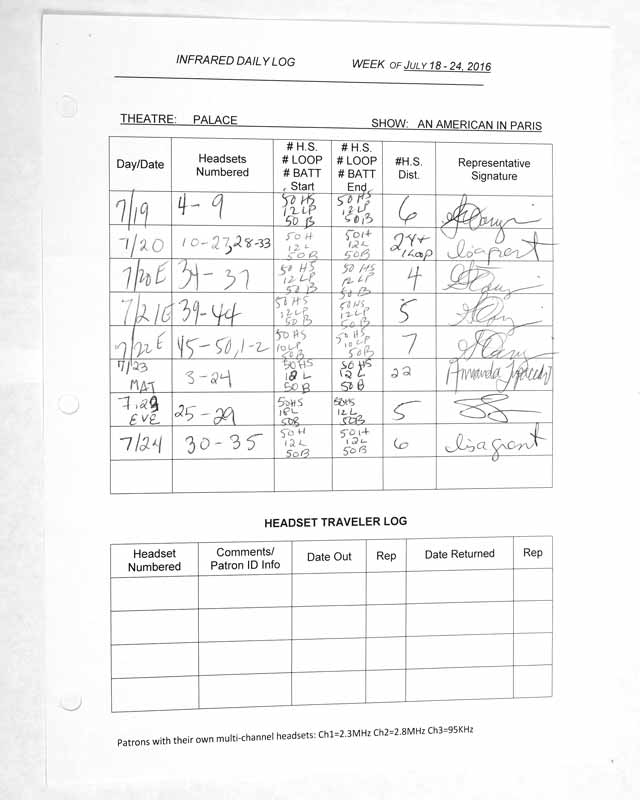 INFRARED DAILY LOG WEEK OF JULY 18 - 24, 2016
THEATRE: PALACE SHOW: AN AMERICAN IN PARIS
Day/Date Headsets Numbered # H.S. # LOOP # BATT Start # H.S. # LOOP # BATT End #H.S. Dist. Representative Signature
7/19 4 - 9 50 HS 12 LP 50 B 50 HS 12 LP 50 B 6
7/20 10-27, 28-33 50 H 12 L 50 B 50 H 12 L 50B 24+ 1 LOOP lisa grant
7/20 E 34 - 37 50 HS 12 LP 50 B 50 HS 12 LP 50 B 4
7/21 E 39-44 50 HS 12 LP 50 B 50 HS 12 LP 50 B 5
7/22 E 45-50, 1-2 50 HS 10 LP 50B 50 HS 10 LP 50B 7
7/23 MAT 3-24 50HS 12 L 50 B 50 HS 12 L 50 B 22 Amanda
7.23 EVE 25-29 50HS 12L 50B 50HS 12 L 50B 5
7/24 30 - 35 50 H 12 L 50B 50 H 12 L 50B 6 lisa grant
HEADSET TRAVELER LOG
Headset Numbered Comments/ Patron ID Info Date Out Rep Date Returned Rep
Patrons with their own multi-channel headsets: Ch1=2.3MHz Ch2=2.8MHz Ch3=95KHz